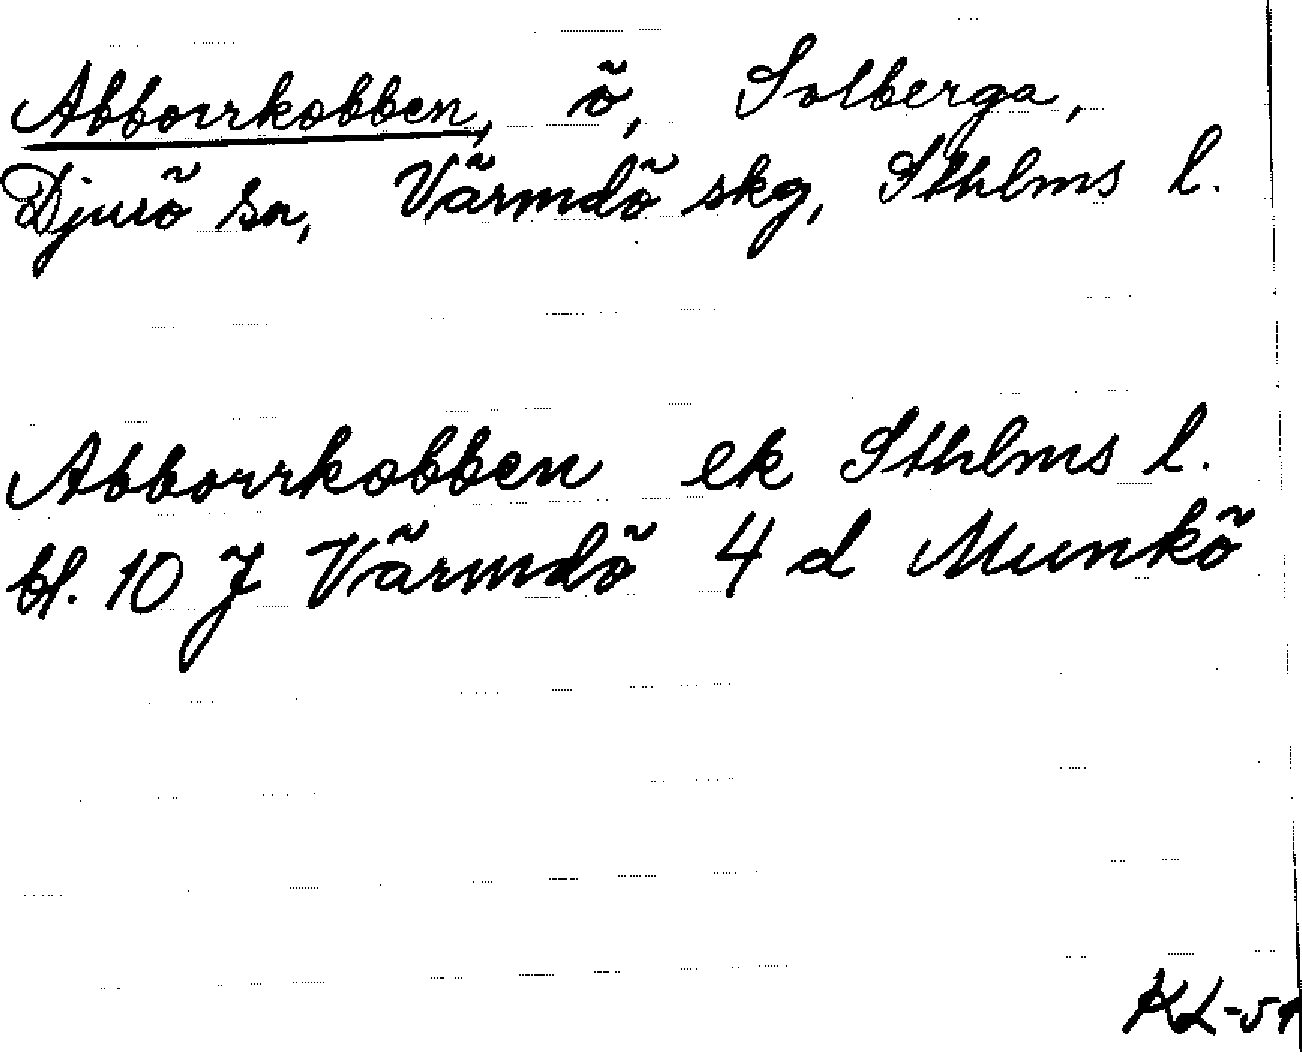 Abborrkobben, ö, Solberga,
Djurö sn, Värmdö skg, Sthlms l.
Abborrkobben ek Sthlms l.
bl. 10 J Värmdö 4 d Munkö
KL-51